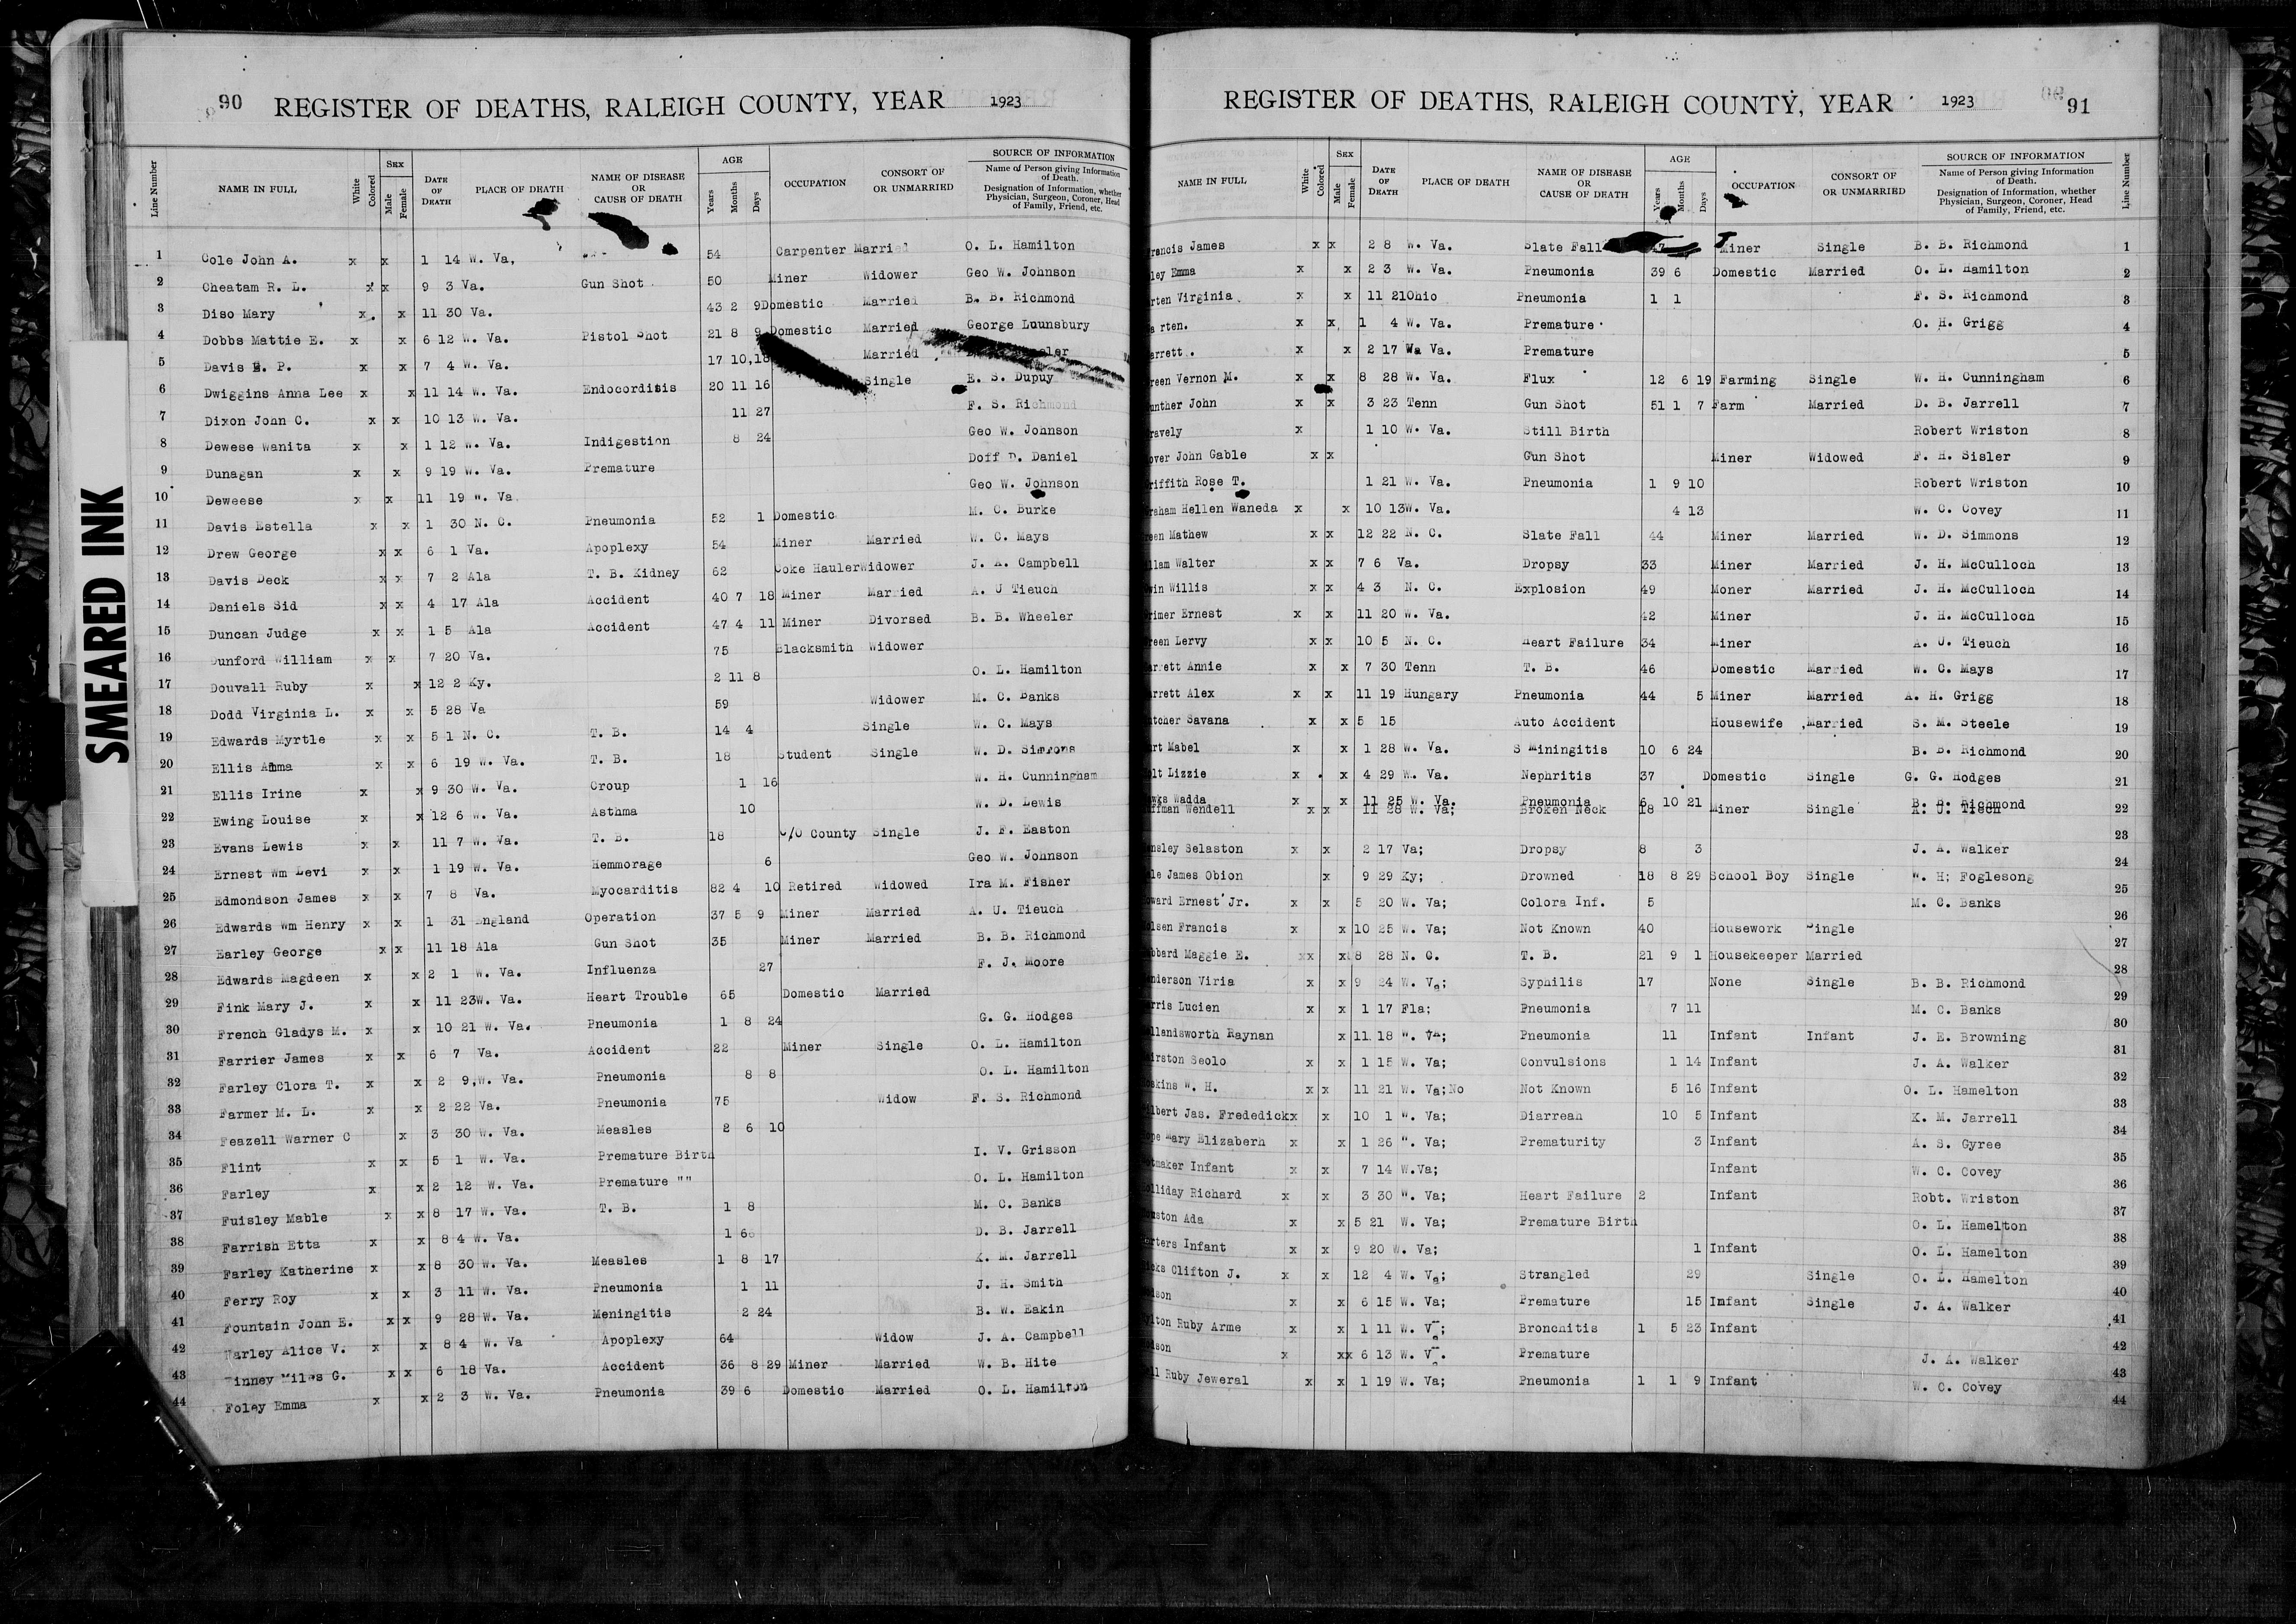 SMEARED INK
90 REGISTER OF DEATHS, RALEIGH COUNTY, YEAR 1923
Line Number NAME IN FULL White Colored SEX Male Female DATE OF DEATH PLACE OF DEATH NAME OF DISEASE OR CAUSE OF DEATH AGE Years Months Days OCCUPATION CONSORT OF OR UNMARRIED SOURCE OF INFORMATION Name of Person giving Information of Death. Designation of Information, whether Physician, Surgeon, Coroner, Head of Family, Friend, etc.
1 Cole John A. x x 1 14 W. Va, 54 Carpenter Married O. L. Hamilton
2 Cheatam R. L. x x 9 3 Va. Gun Shot 50 Miner Widower Geo W. Johnson
3 Diso Mary x x 11 30 Va. 43 2 9 Domestic Married B. B. Richmond
4 Dobbs Mattie E. x x 6 12 W. Va. Pistol Shot 21 8 9 Domestic Married George Luunsbury
5 Davis E. P. x x 7 4 W. Va. 17 10,18 Married
6 Dwiggins Anna Lee x x 11 14 W. Va. Endocorditis 20 11 16 Single E. S. Dupuy
7 Dixon John C. x x 10 13 W. Va. 11 27 F. S. Richmond
8 Dewese Wanita x x 1 12 W. Va. Indigestion 8 24 Geo W. Johnson
9 Dunagan x x 9 19 W. Va. Premature Doff D. Daniel
10 Deweese x x 11 19 W. Va Geo W. Johnson
11 Davis Estella x x 1 30 N. C. Pneumonia 52 1 Domestic M. C. Burke
12 Drew George x x 6 1 Va. Apoplexy 54 Miner Married W. C. Mays
13 Davis Deck x x 7 2 Ala T. B. Kidney 62 Coke Hauler Widower J. A. Campbell
14 Daniels Sid x x 4 17 Ala Accident 40 7 18 Miner Married A. U Tieuch
15 Duncan Judge x x 1 5 Ala Accident 47 4 11 Miner Divorsed B. B. Wheeler
16 Dunford William x x 7 20 Va. 75 Blacksmith Widower
17 Douvall Ruby x x 12 2 Ky. 2 11 8 O. L. Hamilton
18 Dodd Virginia L. x x 5 28 Va 59 Widower M. C. Banks
19 Edwards Myrtle x x 5 1 N. C. T. B. 14 4 Single W. C. Mays
20 Ellis Amma x x 6 19 W. Va. T. B. 18 Student Single W. D. Simmons
21 Ellis Irine x x 9 30 W. Va. Croup 1 16 W. H. Cunningham
22 Ewing Louise x x 12 6 W. Va. Asthma 10 W. D. Lewis
23 Evans Lewis x x 11 7 W. Va. T. B. 18 C/O County Single J. F. Easton
24 Ernest Wm Levi x x 1 19 W. Va. Hemmorage 6 Geo W. Johnson
25 Edmondson James x x 7 8 Va. Myocarditis 82 4 10 Retired Widowed Ira M. Fisher
26 Edwards Wm Henry x x 1 31 England Operation 37 5 9 Miner Married A. U. Tieuch
27 Earley George x x 11 18 Ala Gun Shot 35 Miner Married B. B. Richmond
28 Edwards Magdeen x x 2 1 W. Va. Influenza 27 F. J. Moore
29 Fink Mary J. x x 11 23 W. Va. Heart Trouble 65 Domestic Married
30 French Gladys M. x x 10 21 W. Va. Pneumonia 1 8 24 G. G. Hodges
31 Farrier James x x 6 7 Va. Accident 22 Miner Single O. L. Hamilton
32 Farley Clora T. x x 2 9, W. Va. Pneumonia 8 8 O. L. Hamilton
33 Farmer M. L. x x 2 22 Va. Pneumonia 75 Widow F. S. Richmond
34 Feazell Warner C x 3 30 W. Va. Measles 2 6 10
35 Flint x x 5 1 W. Va. Premature Birth I. V. Grisson
36 Farley x x 2 12 W. Va. Premature "" O. L. Hamilton
37 Fuisley Mable x x 8 17 W. Va. T. B. 1 8 M. C. Banks
38 Farrish Etta x x 8 4 W. Va. 1 6 D. B. Jarrell
39 Farley Katherine x x 8 30 W. Va. Measles 1 8 17 K. M. Jarrell
40 Ferry Roy x x 3 11 W. Va. Pneumonia 1 11 J. H. Smith
41 Fountain John E. x x 9 28 W. Va. Meningitis 2 24 B. W. Eakin
42 Farley Alice V. x x 8 4 W. Va Apoplexy 64 Widow J. A. Campbell
43 Finney Miles G. x x 6 18 Va. Accident 36 8 29 Miner Married W. B. Hite
44 Foley Emma x x 2 3 W. Va. Pneumonia 39 6 Domestic Married O. L. Hamilton
REGISTER OF DEATHS, RALEIGH COUNTY, YEAR 1923 91
NAME IN FULL White Colored SEX Male Female DATE OF DEATH PLACE OF DEATH NAME OF DISEASE OR CAUSE OF DEATH AGE Years Months Days OCCUPATION CONSORT OF OR UNMARRIED SOURCE OF INFORMATION Name of Person giving Information of Death. Designation of Information, whether Physician, Surgeon, Coroner, Head of Family, Friend, etc. Line Number
rancis James x x 2 8 W. Va. Slate Fall 47 Miner Single B. B. Richmond 1
ley Emma x x 2 3 W. Va. Pneumonia 39 6 Domestic Married O. L. Hamilton 2
rten Virginia x x 11 21 Ohio Pneumonia 1 1 F. S. Richmond 3
arten. x x 1 4 W. Va. Premature O. H. Grigg 4
arrett . x x 2 17 Wa Va. Premature 5
reen Vernon M. x x 8 28 W. Va. Flux 12 6 19 Farming Single W. H. Cunningham 6
unther John x x 3 23 Tenn Gun Shot 51 1 7 Farm Married D. B. Jarrell 7
ravely x 1 10 W. Va. Still Birth Robert Wriston 8
over John Gable x x Gun Shot Miner Widowed F. H. Sisler 9
riffith Rose T. 1 21 W. Va. Pneumonia 1 9 10 Robert Wriston 10
raham Hellen Waneda x x 10 13 W. Va. 4 13 W. C. Covey 11
reen Mathew x x 12 22 N. C. Slate Fall 44 Miner Married W. D. Simmons 12
llam Walter x x 7 6 Va. Dropsy 33 Miner Married J. H. McCulloch 13
win Willis x x 4 3 N. C. Explosion 49 Moner Married J. H. McCulloch 14
rimer Ernest x x 11 20 W. Va. 42 Miner J. H. McCulloch 15
reen Lervy x x 10 5 N. C. Heart Failure 34 Miner A. U. Tieuch 16
arrett Annie x x 7 30 Tenn T. B. 46 Domestic Married W. C. Mays 17
arrett Alex x x 11 19 Hungary Pneumonia 44 5 Miner Married A. H. Grigg 18
tcher Savana x x 5 15 Auto Accident Housewife Married S. M. Steele 19
rt Mabel x x 1 28 W. Va. S Miningitis 10 6 24 B. B. Richmond 20
lt Lizzie x x 4 29 W. Va. Nephritis 37 Domestic Single G. G. Hodges 21
wks Wadda x x 11 25 W. Va. Pneumonia 6 10 21 B. B. Richmond
ffman Wendell x x 11 28 W. Va; Broken Neck 18 Miner Single A. U. Tiech 22
23
nsley Selaston x x 2 17 Va; Dropsy 8 3 J. A. Walker 24
le James Obion x 9 29 Ky; Drowned 18 8 29 School Boy Single W. H; Foglesong 25
oward Ernest Jr. x x 5 20 W. Va; Colora Inf. 5 M. C. Banks 26
olsen Francis x x 10 25 W. Va; Not Known 40 Housework Single 27
bbard Maggie E. xx x 8 28 N. C. T. B. 21 9 1 Housekeeper Married 28
nderson Viria x x 9 24 W. Va; Syphilis 17 None Single B. B. Richmond 29
rris Lucien x x 1 17 Fla; Pneumonia 7 11 M. C. Banks 30
llandsworth Raynan x 11 18 W. Va; Pneumonia 11 Infant Infant J. E. Browning 31
irston Seolo x x 1 15 W. Va; Convulsions 1 14 Infant J. A. Walker 32
skins W. H. x x 11 21 W. Va; No Not Known 5 16 Infant O. L. Hamelton 33
lbert Jas. Frededick x x 10 1 W. Va; Diarreah 10 5 Infant K. M. Jarrell 34
ope Mary Elizabern x x 1 26 ". Va; Prematurity 3 Infant A. S. Gyree 35
tmaker Infant x x 7 14 W.Va; Infant W. C. Covey 36
lliday Richard x x 3 30 W. Va; Heart Failure 2 Infant Robt. Wriston 37
uston Ada x x 5 21 W. Va; Premature Birth O. L. Hamelton 38
rters Infant x x 9 20 W. Va; 1 Infant O. L. Hamelton 39
icks Clifton J. x x 12 4 W. Va; Strangled 29 Single O. L. Hamelton 40
son x x 6 15 W. Va; Premature 15 Infant Single J. A. Walker 41
lton Ruby Arme x x 1 11 W. Va; Bronchitis 1 5 23 Infant 42
son x xx 6 13 W. Va. Premature J. A. Walker 43
ll Ruby Jeweral x x 1 19 W. Va; Pneumonia 1 1 9 Infant W. C. Covey 44